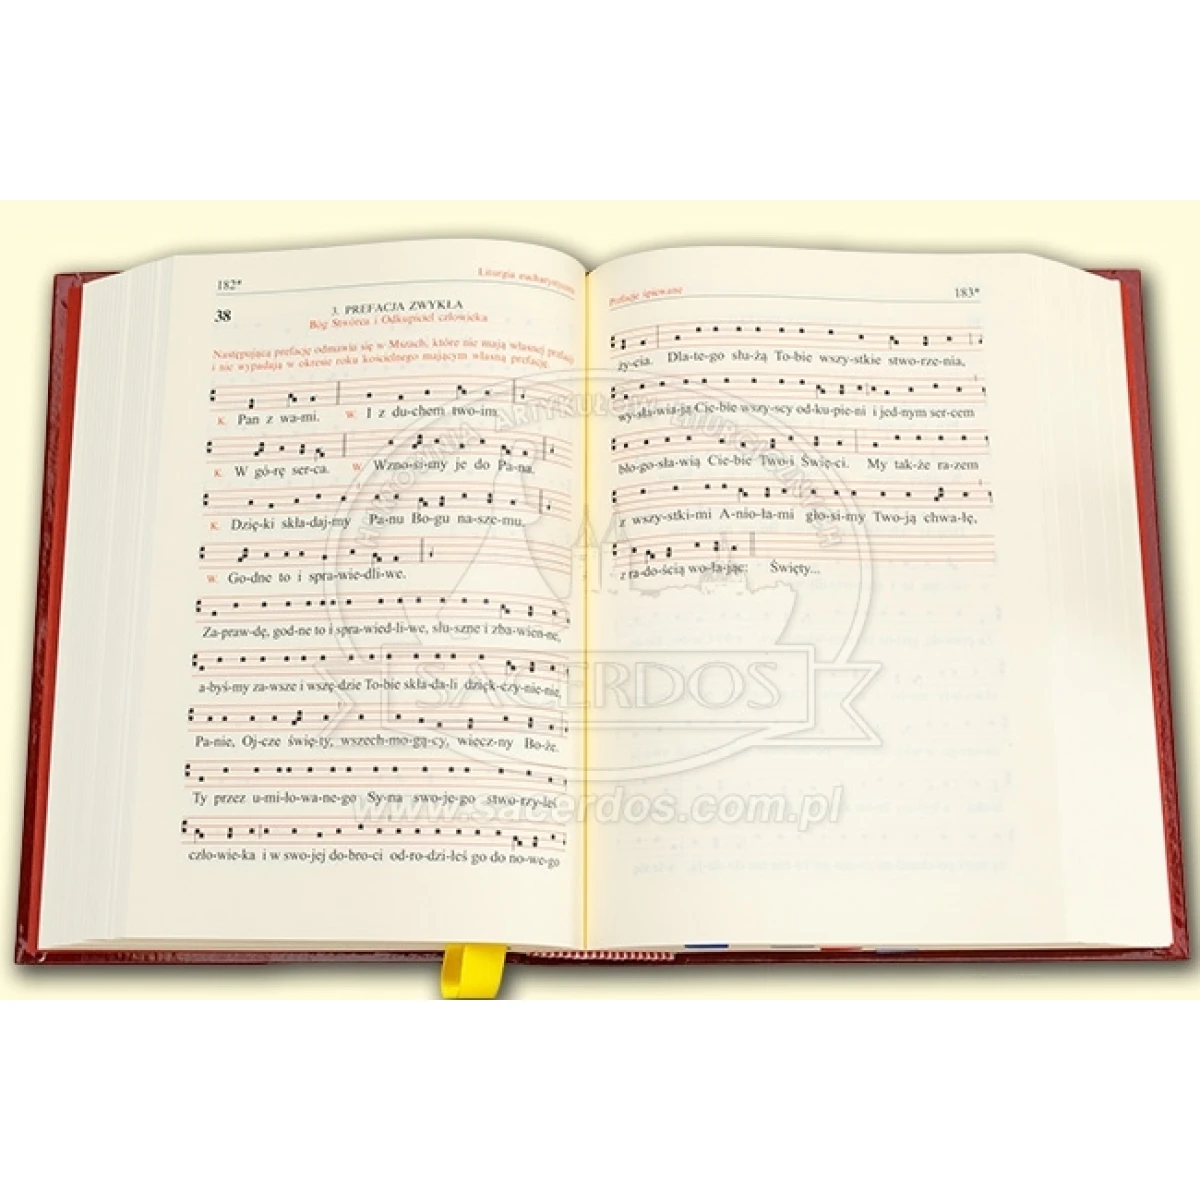 182* Liturgia eucharystyczna
38 3. PREFACJA ZWYKŁA
Bóg Stwórca i Odkupiciel człowieka
Następującą prefację odmawia się w Mszach, które nie mają własnej prefacji
i nie wypadają w okresie roku kościelnego mającym własną prefację.
K. Pan z wa-mi. W. I z du-chem two-im.
K. W gó-rę ser-ca. W. Wzno-si-my je do Pa-na.
K. Dzię-ki skła-daj-my Pa-nu Bo-gu na-sze-mu.
W. Go-dne to i spra-wie-dli-we.
Za-praw-dę, god-ne to i spra-wied-li-we, słu-szne i zba-wien-ne,
a-byś-my za-wsze i wszę-dzie To-bie skła-da-li dzięk-czy-nie-nie,
Pa-nie, Oj-cze świę-ty, wszech-mo-gą-cy, wiecz-ny Bo-że.
Ty przez u-mi-ło-wa-ne-go Sy-na swo-je-go stwo-rzy-łeś
czło-wie-ka i w swo-jej do-bro-ci od-ro-dzi-łeś go do no-we-go
Prefacje śpiewane 183*
ży-cia. Dla-te-go słu-żą To-bie wszy-stkie stwo-rze-nia,
wy-sła-wia-ją Cie-bie wszy-scy od-ku-pie-ni i jed-nym ser-cem
bło-go-sła-wią Cie-bie Two-i Świę-ci. My tak-że ra-zem
z wszy-stki-mi A-nio-ła-mi gło-si-my Two-ją chwa-łę,
z ra-do-ścią wo-ła-jąc: Święty...
HURTOWNIA ARTYKUŁÓW LITURGICZNYCH
SACERDOS
www.sacerdos.com.pl